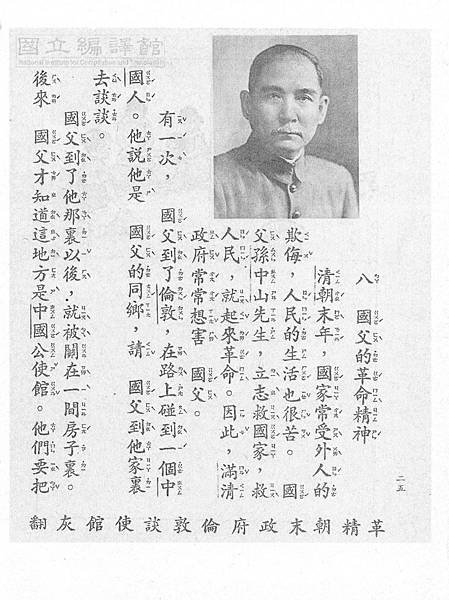 國立編譯館
National Institute for Compilation and Translation
八　國父的革命精神
清朝末年，國家常受外人的
欺侮，人民的生活也很苦。　國
父孫中山先生，立志救國家，救
人民，就起來革命。因此，滿清
政府常常想害　國父。
有一次，　國父到了倫敦，在路上碰到一個中
國人。他說他是　國父的同鄉，請　國父到他家裏
去談談。
國父到了他那裏以後，就被關在一間房子裏。
後來　國父才知道這地方是中國公使館。他們要把
二五
革精朝末政府倫敦談使館灰翻